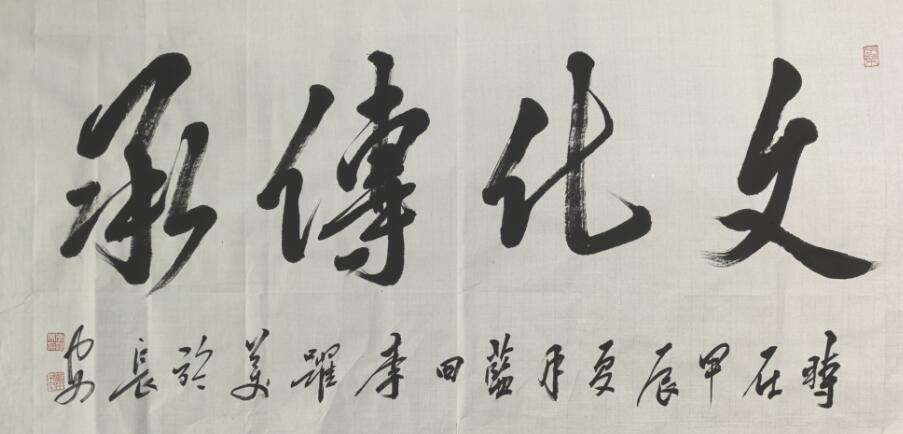 文化傳承
時在甲辰夏月藍田李躍美於長安